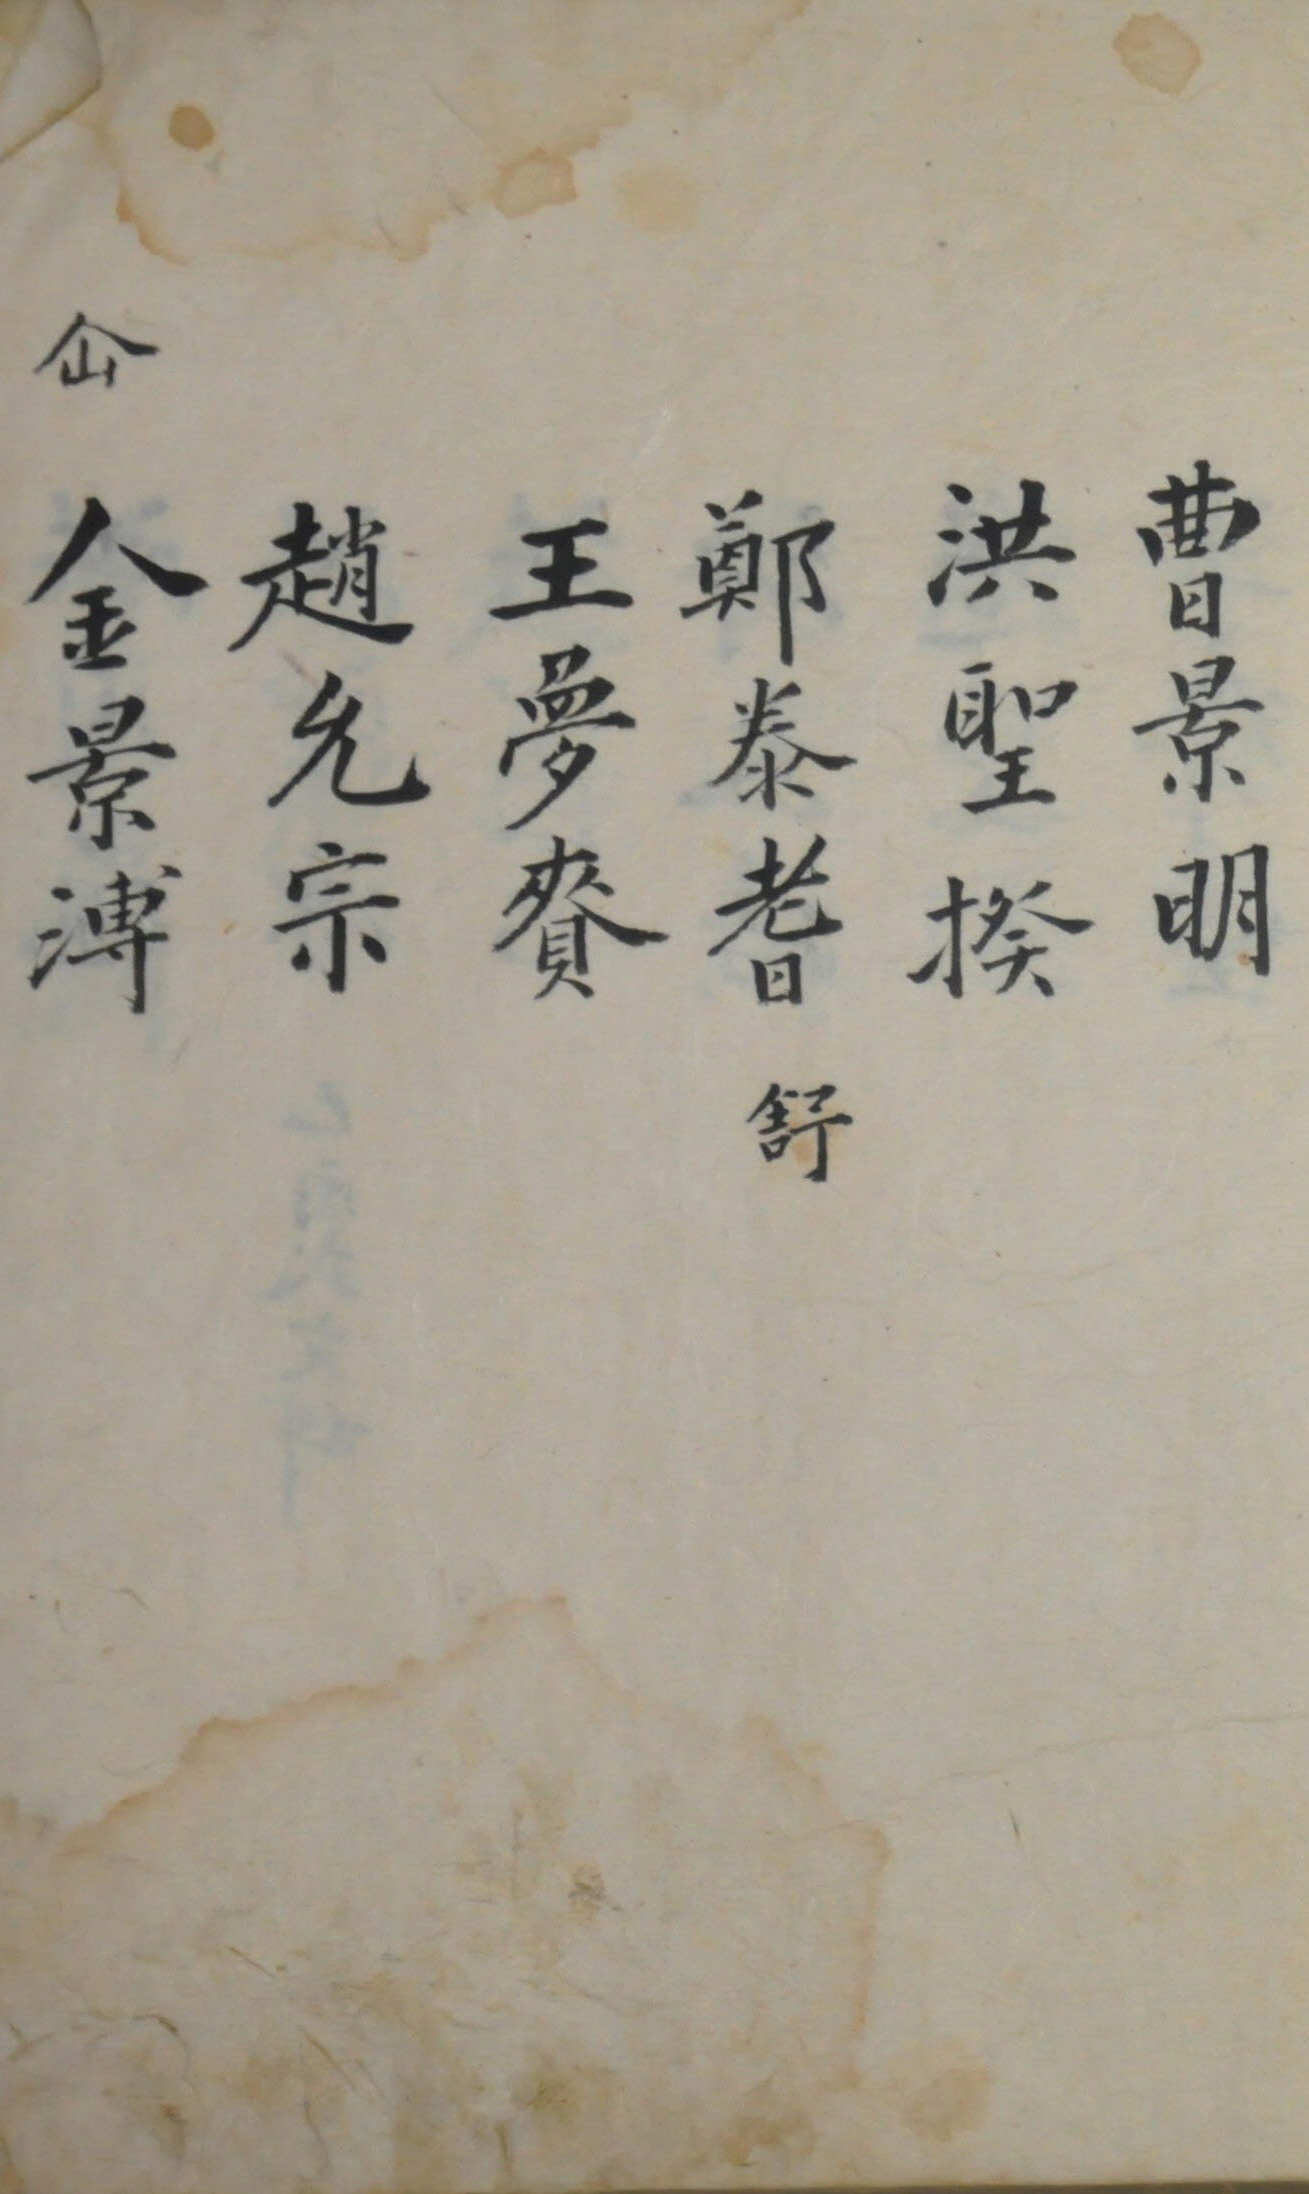 曺景明
洪聖揆
鄭泰耆 舒
王夢賚
趙允宗
仚 金景溥